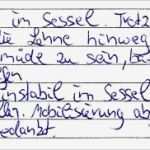 im Sessel. Trotz
die Lehne hinweg
müde zu sein, ba
instabil im Sessel
Mobilisierung ab